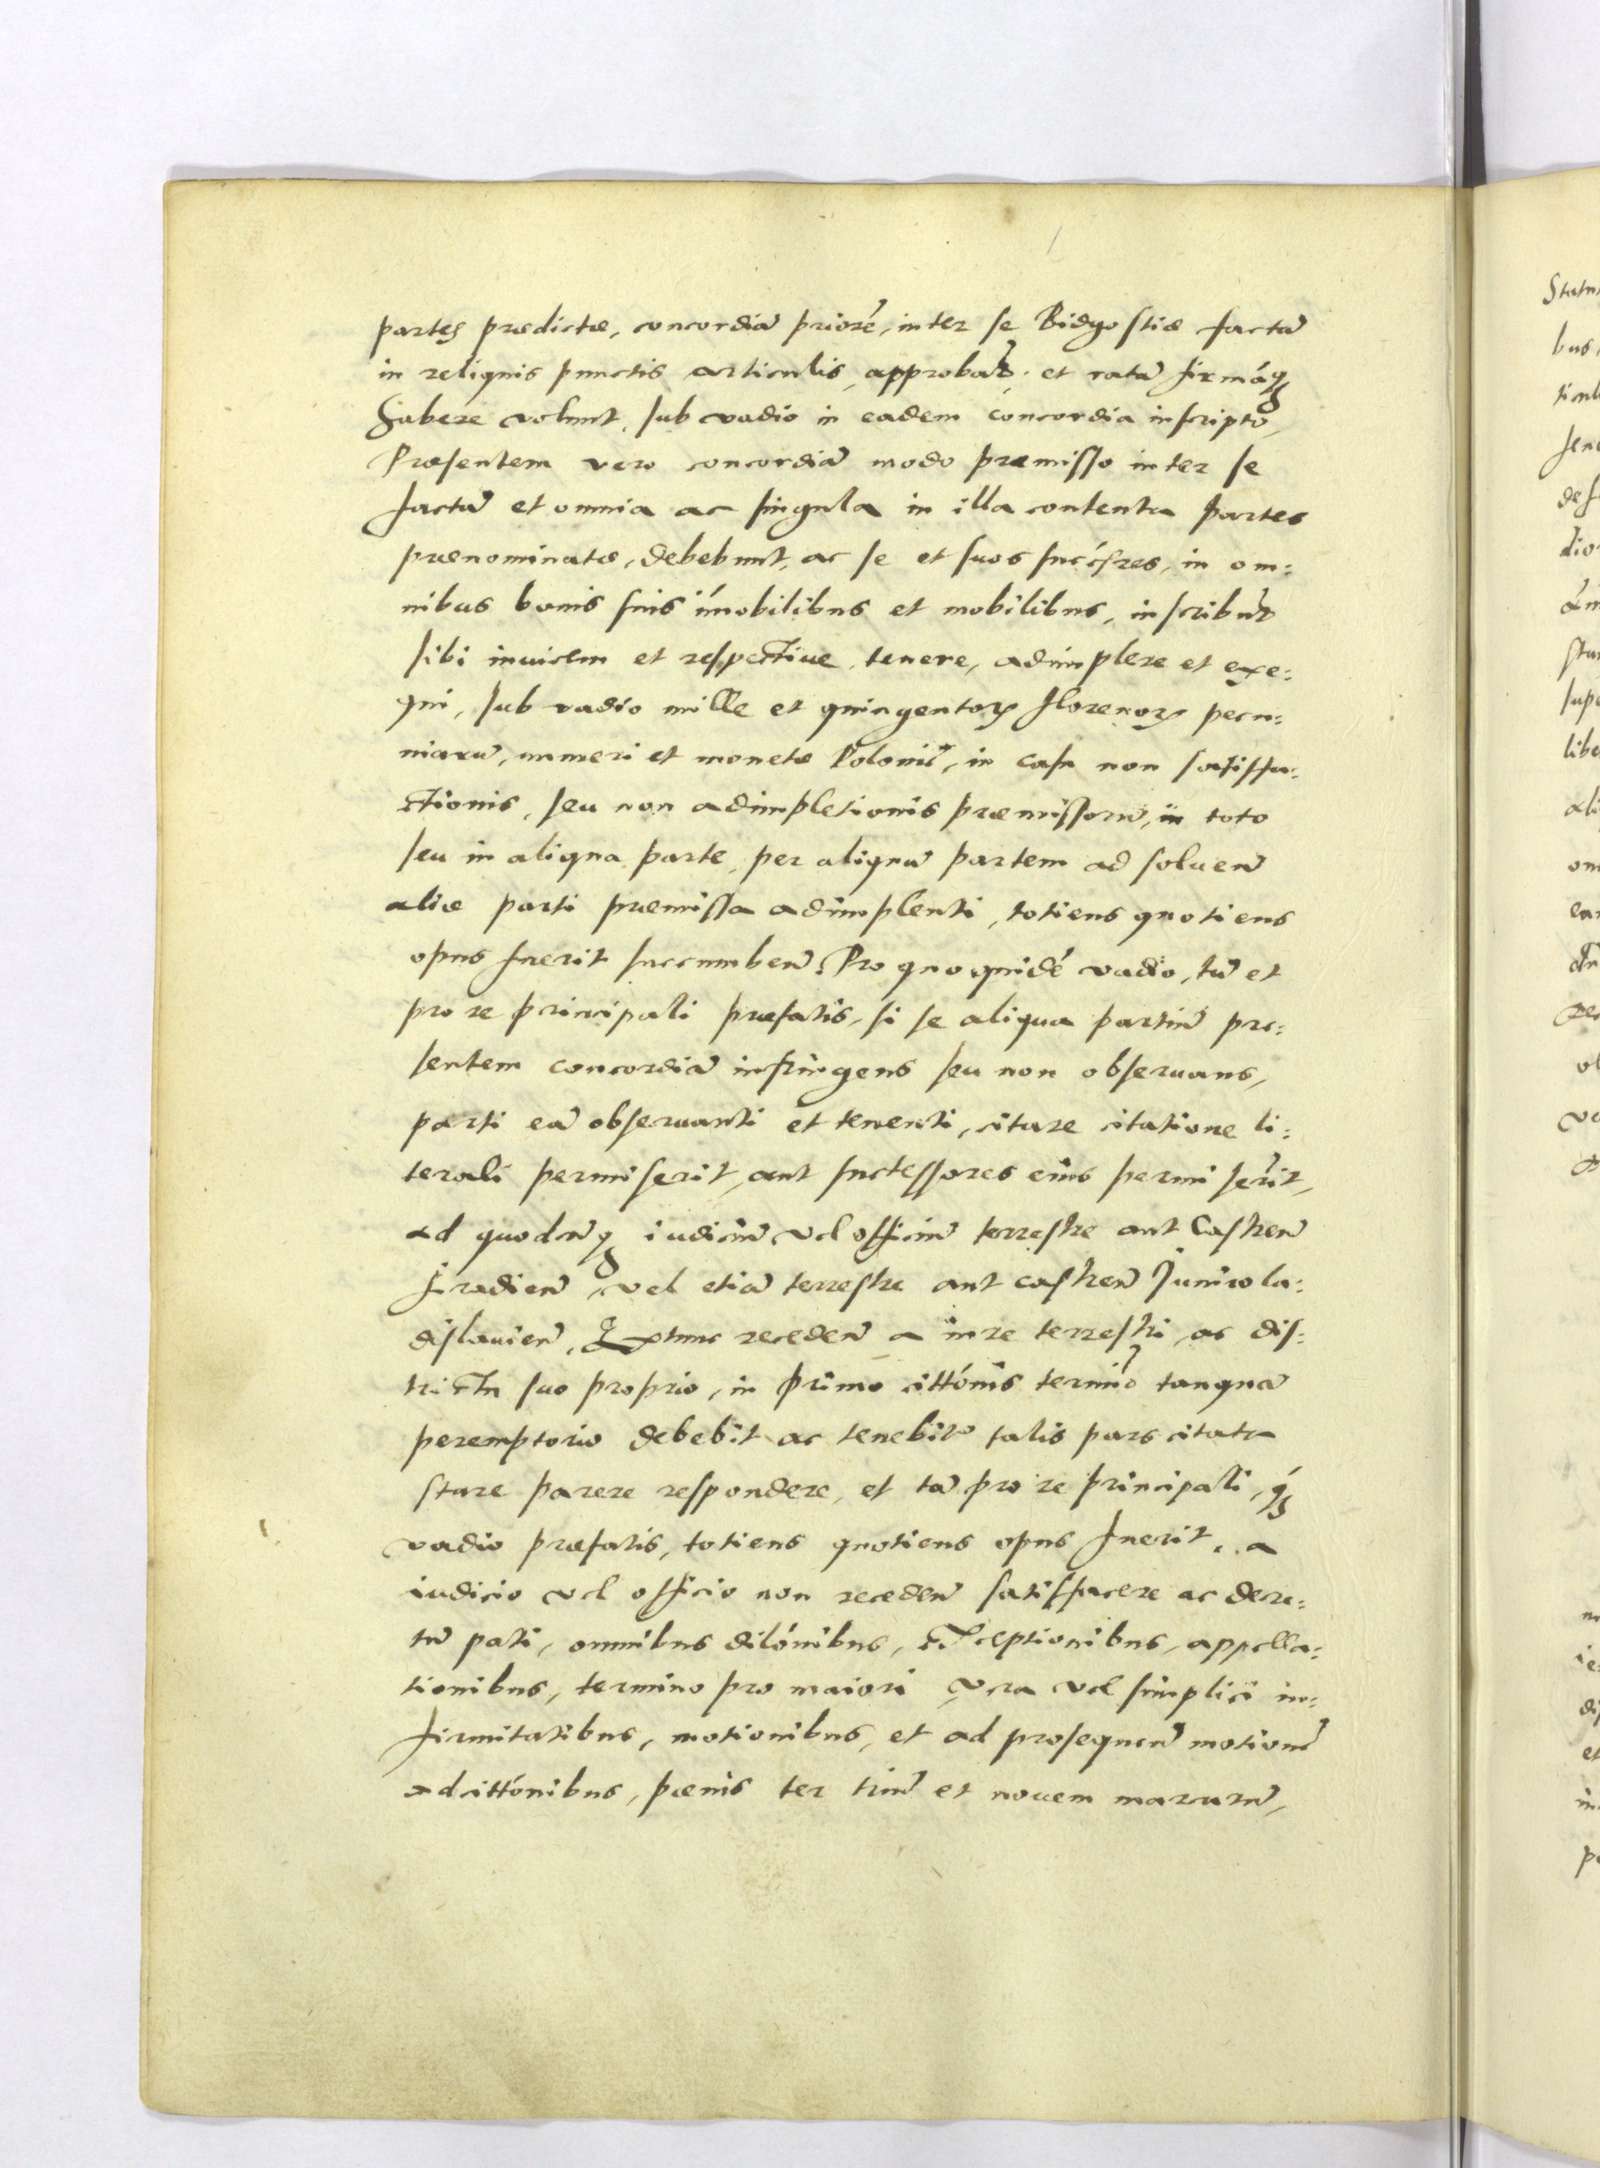 partes prædictæ, concordiā priorē, inter se Bidgostiæ factā
in reliquis punctis articulis, approbāt, et ratā firmāq̃
habere volunt, sub vadio in eadem concordia inscripto,
Præsentem vero concordiā modo præmisso inter se
factā et omnia ac singula in illa contenta partes
prænominatæ, debebunt, ac se et suos succ̃sres, in om:
nibus bonis suis im̃obilibus et mobilibus, inscribūt
sibi inuicem et respectiue, tenere, adimplere et exe:
qui, sub vadio mille et quingentorꝝ florenorꝝ pecu:
niarū, numeri et monetæ Polonic̃, in casu non satisfa:
ctionis, seu non adimpletionis præmissorū, in toto
seu in aliqua parte, per aliquā partem ad soluen̄
aliæ parti præmissa adimplenti, totiens quotiens
opus fuerit succumben̄. Pro quo quidē vadio, tū et
pro re principali præfatis, si se aliqua partiū præ:
sentem concordiā infringens seu non obseruans,
parti eā obseruanti et tenenti, citare citatione li:
terali permiserit, aut successores eius permiserīt,
ad quodcūq̃ iudiciū vel officiū terrestre aut Castren̄
Sradien̄, vel etiā terrestre aut castren̄ Juniwla:
dislauien̄, Extunc receden̄ a iure terrestri, ac dis:
trictu suo proprio, in primo citt̃onis termīo tanquā
peremptorio debebit ac tenebitᵘʳ talis pars citata
stare parere respondere, et tā pro re principali, q̃ꝫ
vadio præfatis, totiens quotiens opus fuerit, a
iudicio vel officio non receden̄ satisfacere ac decre:
tū pati, omnibus dil̃onibus, exceptionibus, appella:
tionibus, termino pro maiori vera vel simplici in:
firmitatibus, motionibus, et ad prosequen̄ motionē
adcitt̃onibus, pœnis ter triū et nouem marcarū,